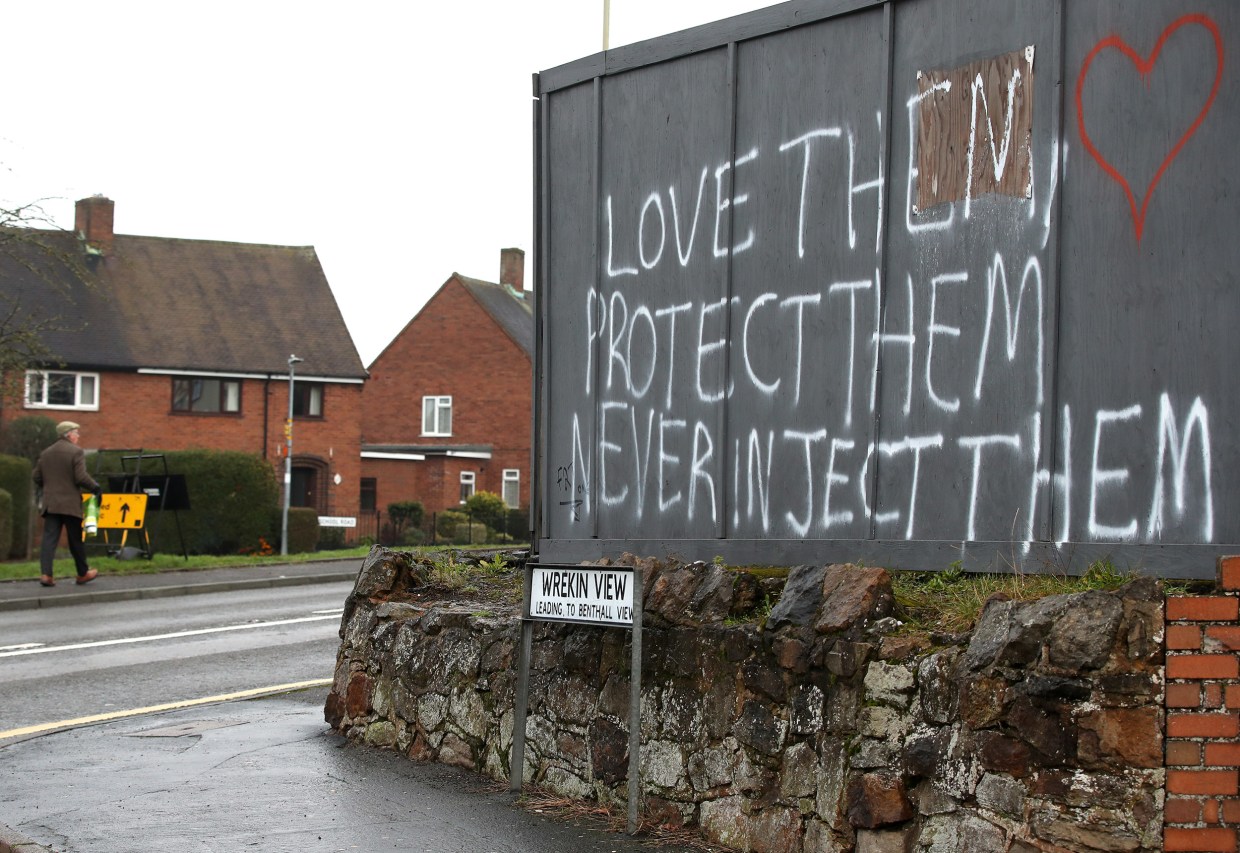 LOVE THEM
PROTECT THEM
NEVER INJECT THEM
WREKIN VIEW
LEADING TO BENTHALL VIEW
SCHOOL ROAD